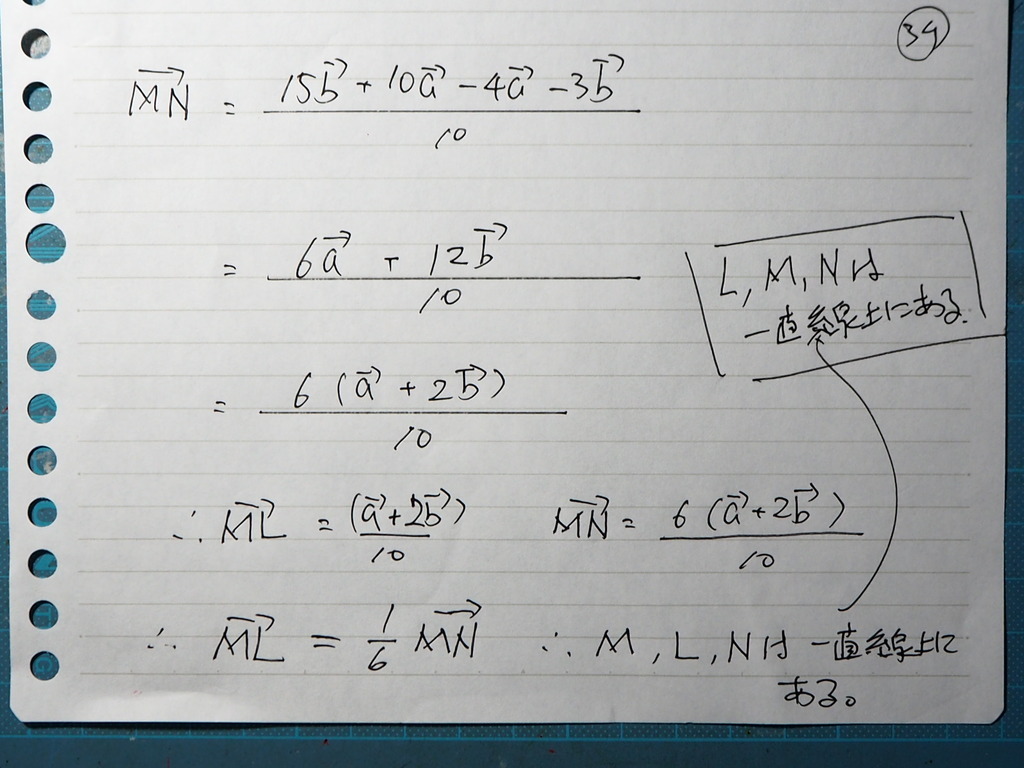 39
$\overrightarrow{MN} = \frac{15\vec{b} + 10\vec{a} - 4\vec{a} - 3\vec{b}}{10}$
$= \frac{6\vec{a} + 12\vec{b}}{10}$
L, M, Nは
一直線上にある.
$= \frac{6(\vec{a} + 2\vec{b})}{10}$
$\therefore \overrightarrow{ML} = \frac{(\vec{a} + 2\vec{b})}{10}$ $\overrightarrow{MN} = \frac{6(\vec{a} + 2\vec{b})}{10}$
$\therefore \overrightarrow{ML} = \frac{1}{6}\overrightarrow{MN}$ $\therefore$ M, L, Nは 一直線上に
ある。